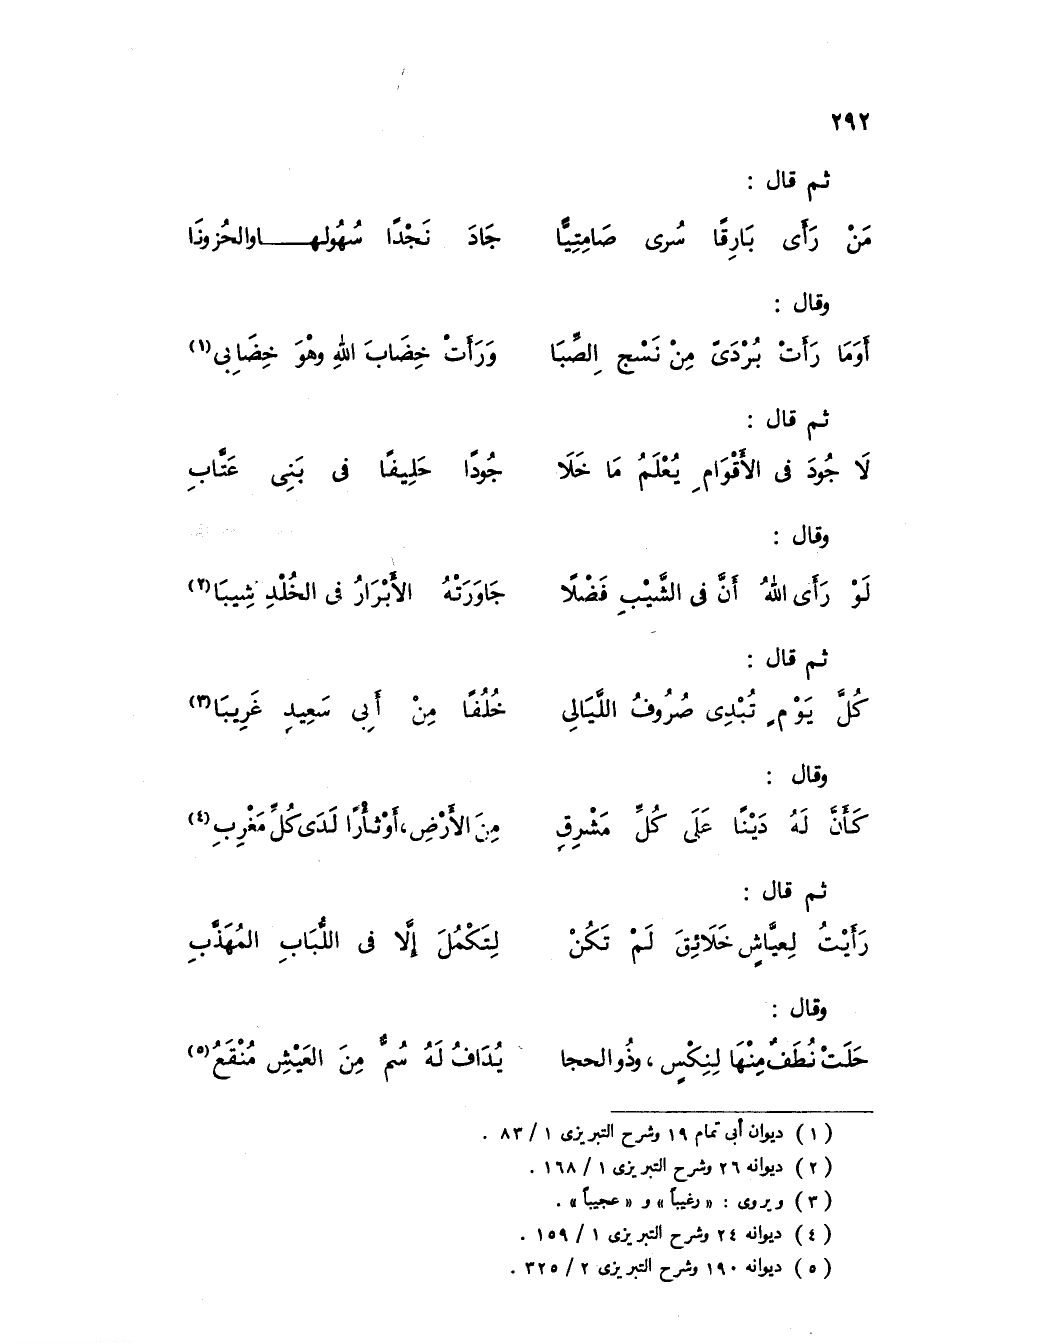 ٢٩٢
ثم قال :
مَنْ رَأَى بَارِقًا سُرى صَامِتِيًّا جَادَ نَجْدًا سُهُولهـــــاوالحُزونَا
وقال :
أَوَمَا رَأَتْ بُرْدَىَّ مِنْ نَسْجِ الصِّبَا وَرَأَتْ خِضَابَ اللهِ وهْوَ خِضَابِى(١)
ثم قال :
لَا جُودَ فى الأَقْوَامِ يُعْلَمُ مَا خَلَا جُودًا حَلِيفًا فى بَنِى عَتَّابِ
وقال :
لَوْ رَأَى اللهُ أَنَّ فى الشَّيْبِ فَضْلًا جَاوَرَتْهُ الأَبْرَارُ فى الخُلْدِ شِيبَا(٢)
ثم قال :
كُلَّ يَوْمٍ تُبْدِى صُرُوفُ اللَّيَالِى خُلُقًا مِنْ أَبِى سَعِيدٍ غَرِيبَا(٣)
وقال :
كَأَنَّ لَهُ دَيْنًا عَلَى كُلِّ مَشْرِقٍ مِنَ الأَرْضِ، أَوْ ثَأْرًا لَدَى كُلِّ مَغْرِبِ(٤)
ثم قال :
رَأَيْتُ لِعيَّاشٍ خَلَائِقَ لَمْ تَكُنْ لِتَكْمُلَ إِلَّا فى اللُّبَابِ المُهَذَّبِ
وقال :
حَلَتْ نُطَفٌ مِنْهَا لِنِكْسٍ ، وذُو الحجا يُدَافُ لَهُ سُمٌّ مِنَ العَيْشِ مُنْقَعُ(٥)
(١) ديوان أبى تمام ١٩ وشرح التبريزى ١ / ٨٣ .
(٢) ديوانه ٢٦ وشرح التبريزى ١ / ١٦٨ .
(٣) ويروى : « رغيباً » و « عجيباً » .
(٤) ديوانه ٢٤ وشرح التبريزى ١ / ١٥٩ .
(٥) ديوانه ١٩٠ وشرح التبريزى ٢ / ٣٢٥ .